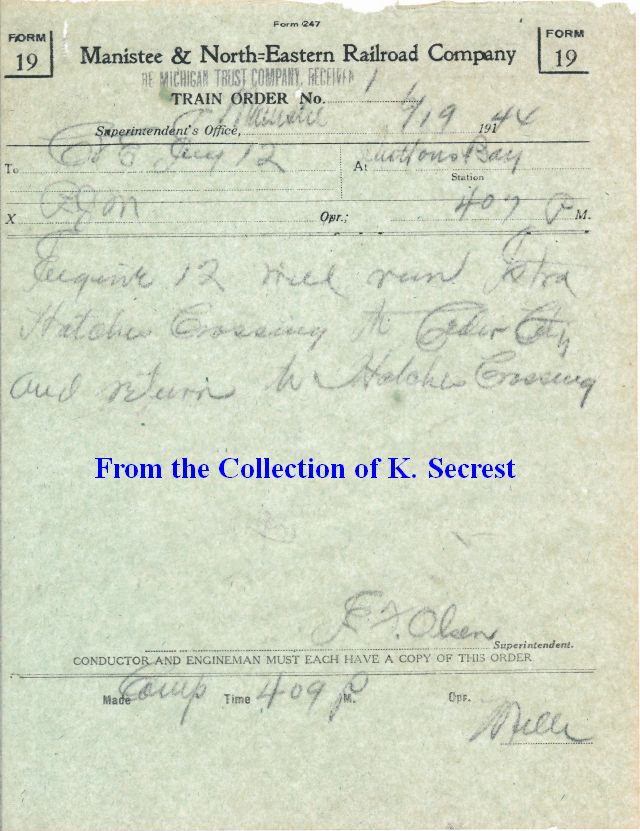 Form 247
FORM 19
FORM 19
Manistee & North=Eastern Railroad Company
THE MICHIGAN TRUST COMPANY, RECEIVER
TRAIN ORDER No. 1
Superintendent's Office, 7/19 1944
To C&E Eng 12 At Suttons Bay
Station
X Opr.; 407 P M.
Engine 12 will run Extra
Hatches Crossing to Cedar City
and return to Hatches Crossing
From the Collection of K. Secrest
Olsen
Superintendent.
CONDUCTOR AND ENGINEMAN MUST EACH HAVE A COPY OF THIS ORDER
Made Comp Time 409 P M. Opr.